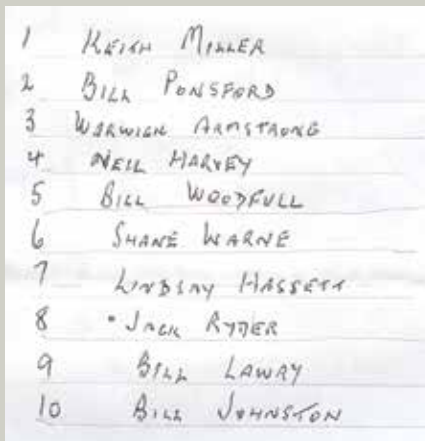 1 KEITH MILLER
2 BILL PONSFORD
3 WARWICK ARMSTRONG
4 NEIL HARVEY
5 BILL WOODFULL
6 SHANE WARNE
7 LINDSAY HASSETT
8 • JACK RYDER
9 BILL LAWRY
10 BILL JOHNSTON